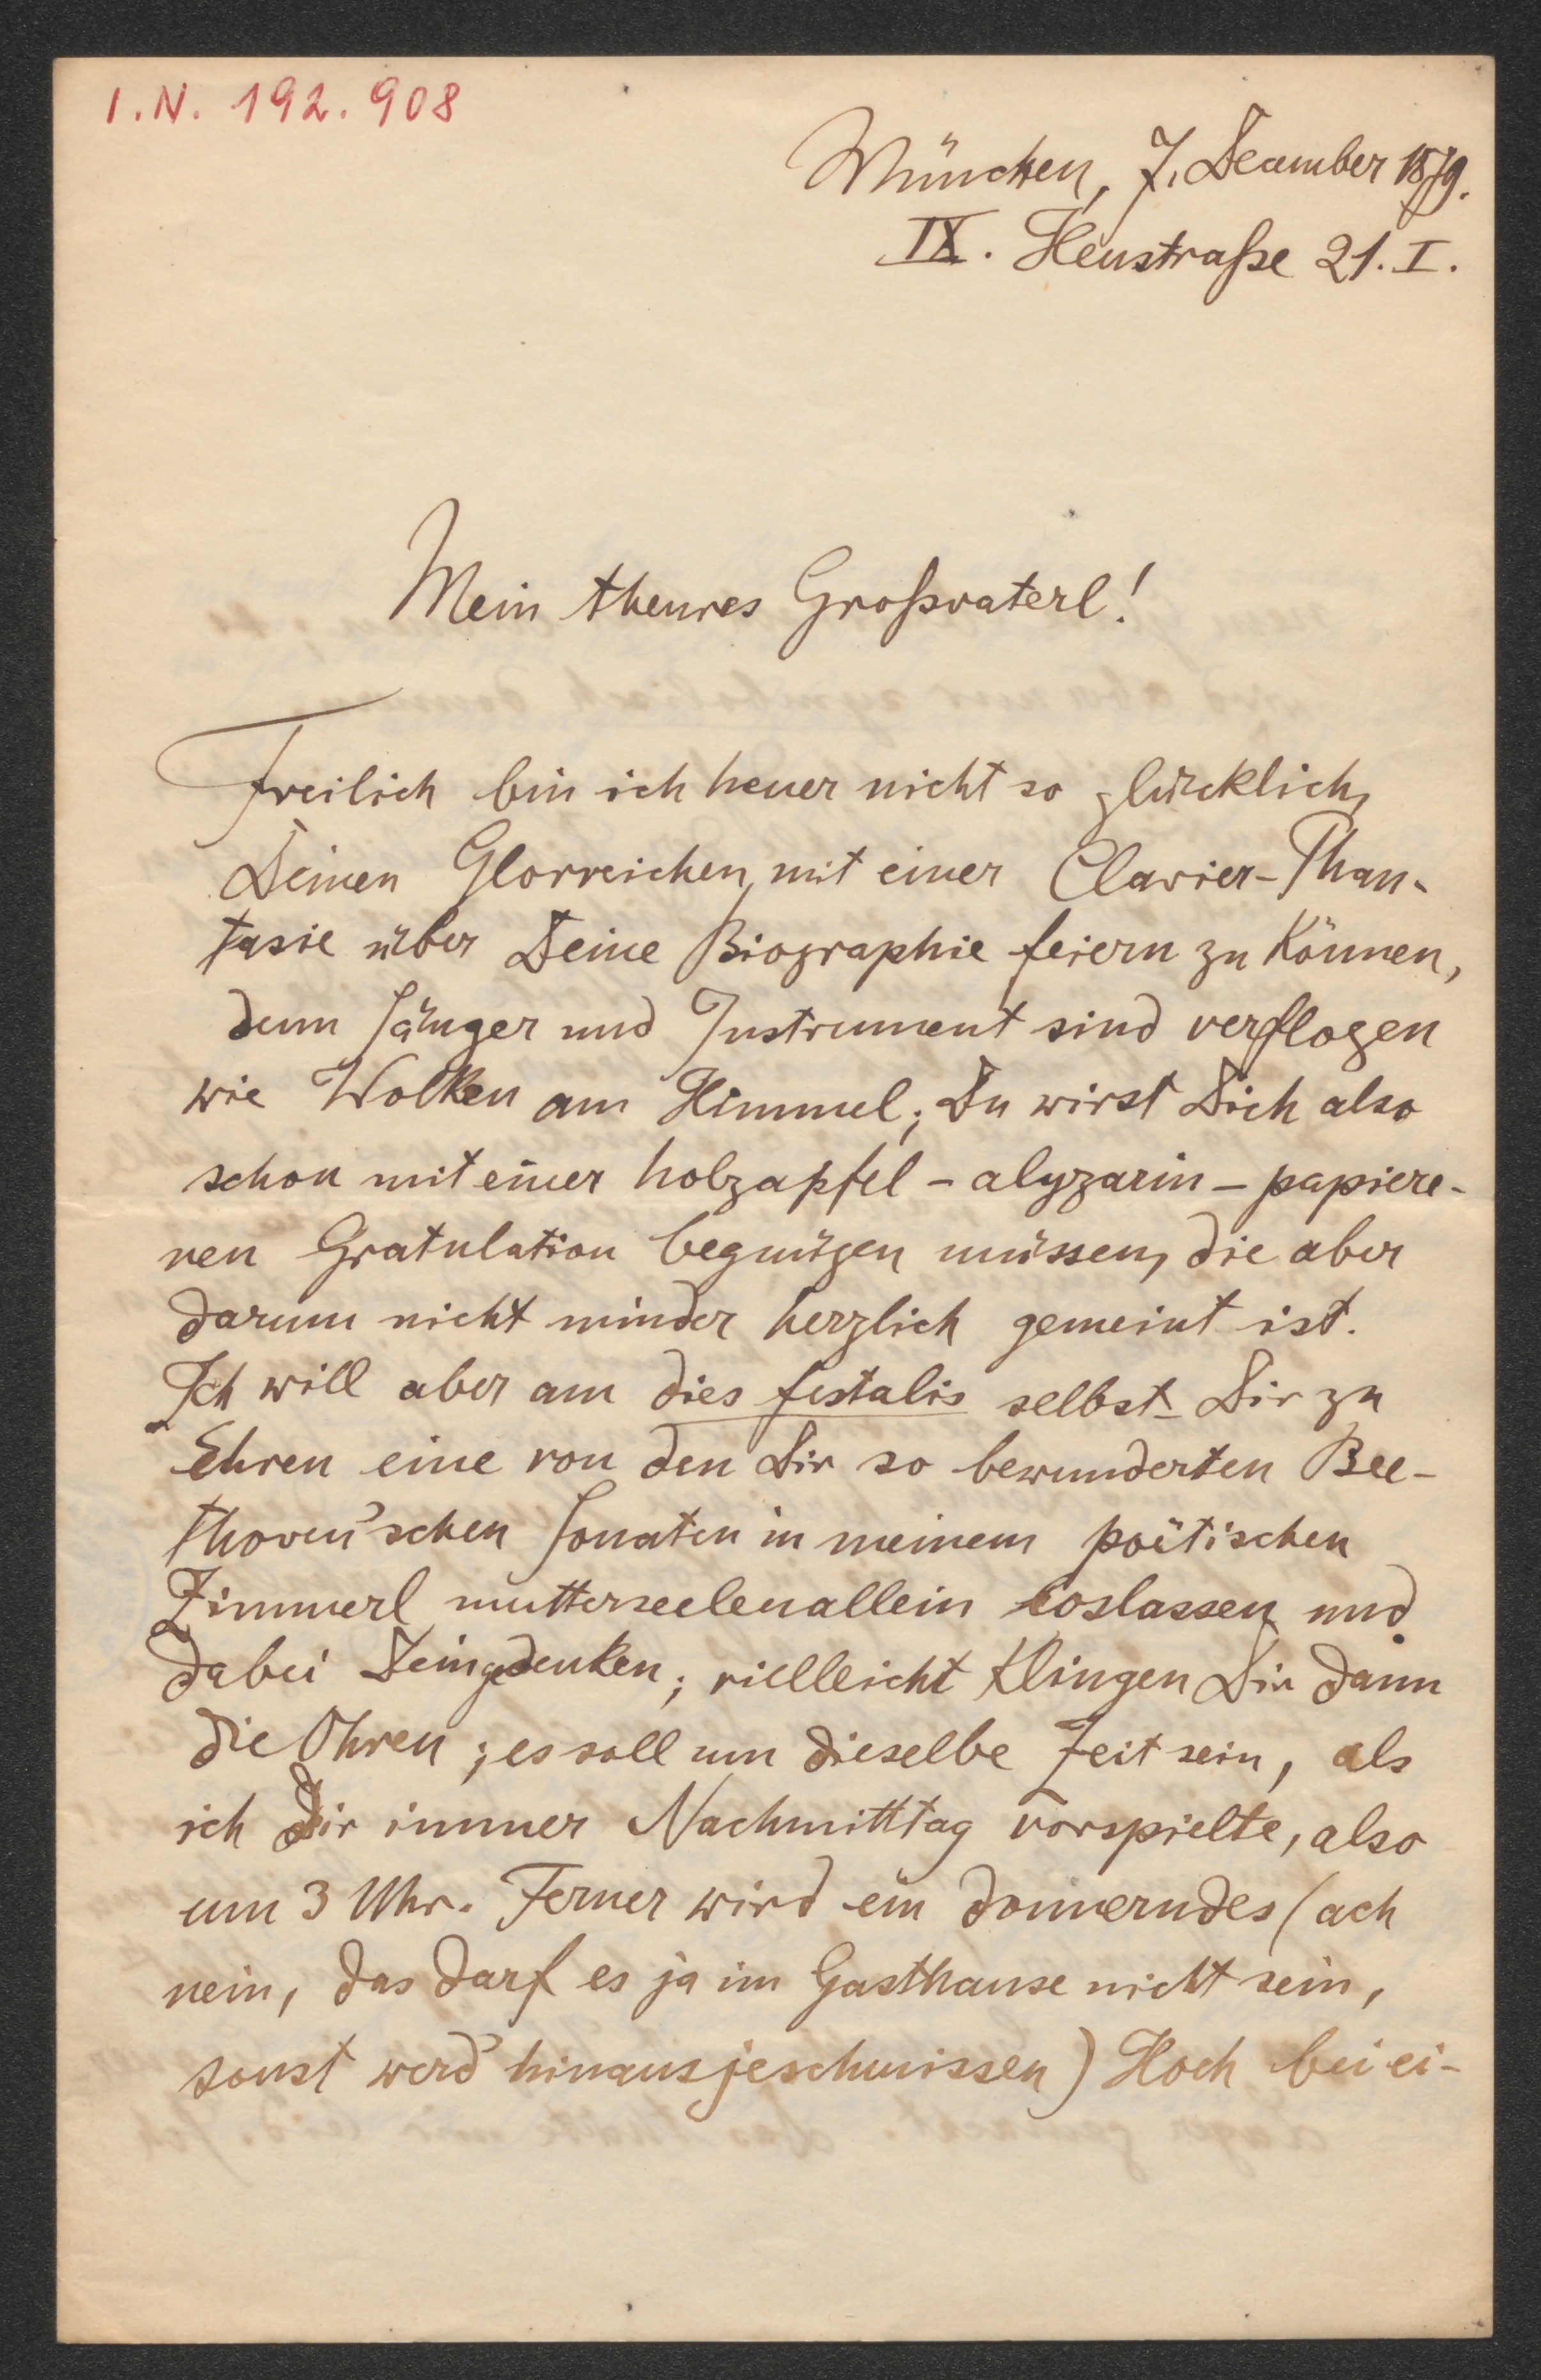 I.N. 192.908
München, 7. December 1879.
IX. Heustraße 21. I.
Mein theures Großvaterl!
Freilich bin ich heuer nicht so glücklich,
Deinen Glorreichen mit einer Clavier-Phan-
tasie über Deine Biographie feiern zu können,
denn Sänger und Instrument sind verflogen
wie Wolken am Himmel; Du wirst Dich also
schon mit einer holzapfel-alyzarin-papiere-
nen Gratulation begnügen müssen, die aber
darum nicht minder herzlich gemeint ist.
Ich will aber am dies festalis selbst Dir zu
Ehren eine von den Dir so bewunderten Bee-
thoven'schen Sonaten in meinem poëtischen
Zimmerl mutterseelenallein loslassen und
dabei Dein gedenken; vielleicht klingen Dir dann
die Ohren; es soll um dieselbe Zeit sein, als
ich Dir immer Nachmitttag vorspielte, also
um 3 Uhr. Ferner wird ein donnerndes (ach
nein, das darf es ja im Gasthause nicht sein,
sonst werd' hinausjeschmissen) Hoch bei ei-